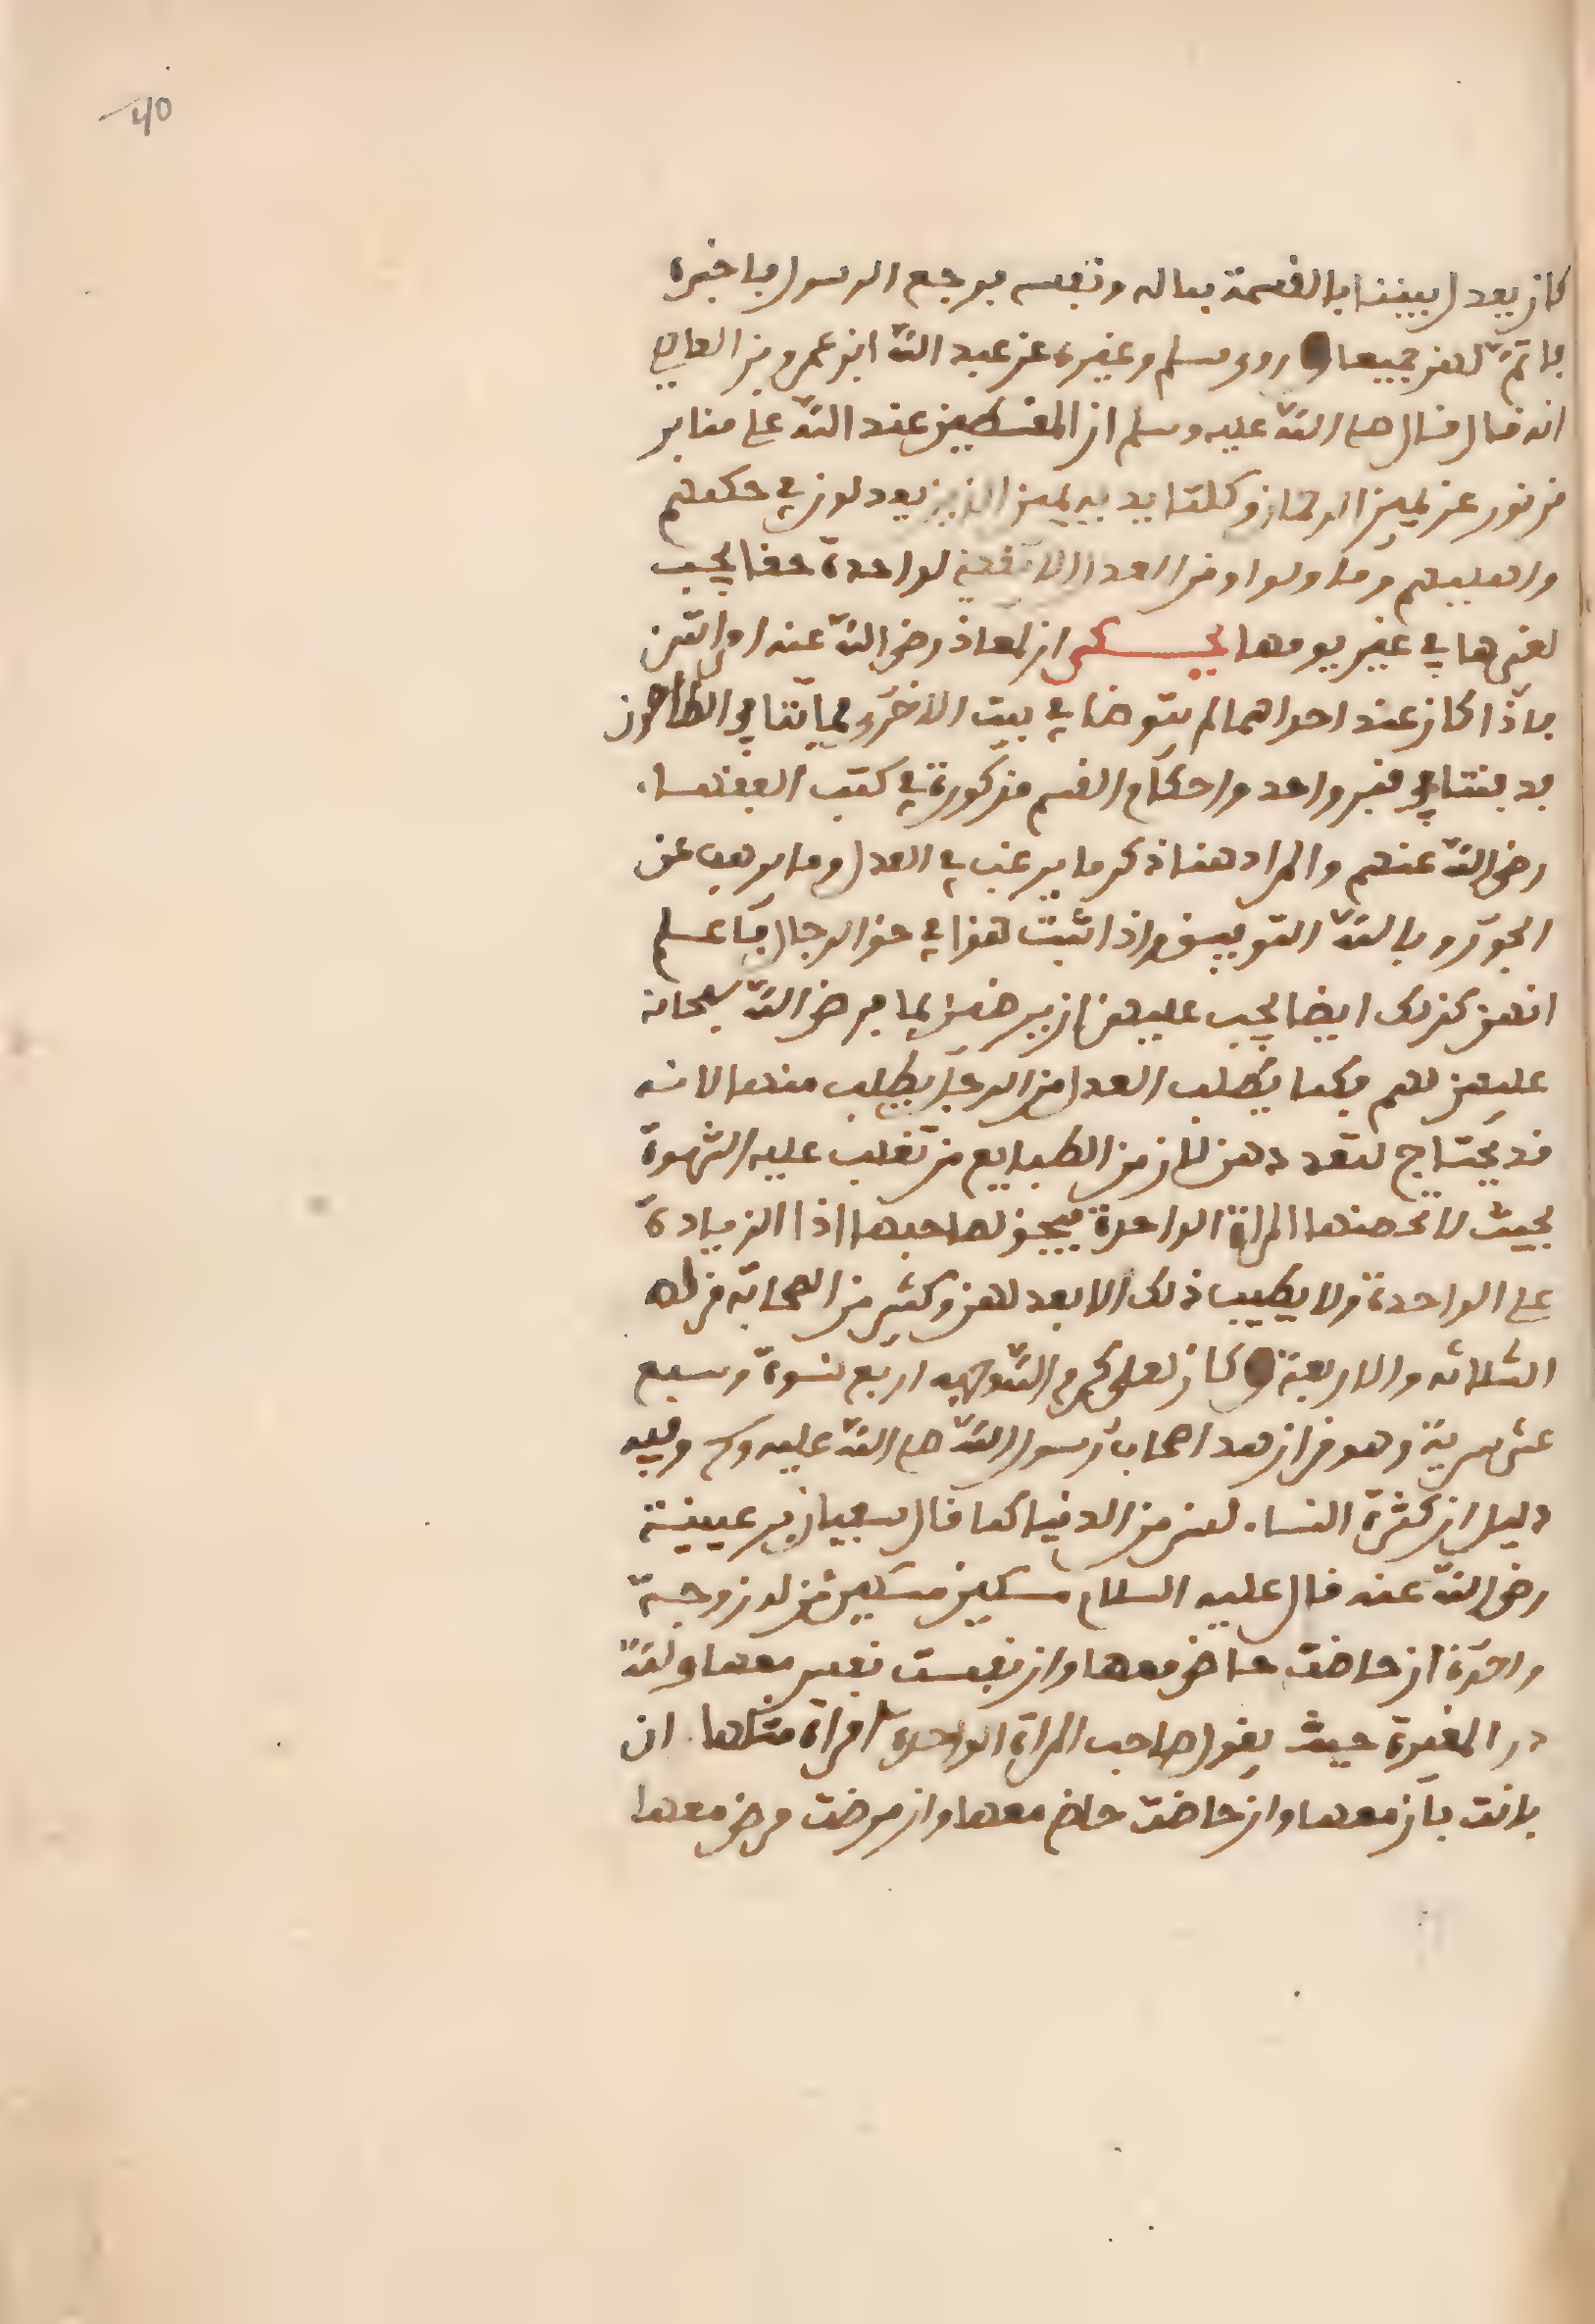 40
كان يعدل بيننا بالقسمة بماله ونفسه فرجع الرسول فاخبره
فاتم لهن جميعا وروى مسلم وغيره عن عبد الله ابن عمرو بن العاص
انه قال قال صلى الله عليه وسلم ان المقسطين عند الله على منابر
من نور عن يمين الرحمان وكلتا يديه يمين الذين يعدلون في حكمهم
واهليهم وما ولوا ومن العدل الا يقضي لواحدة حقا يجب
لغيرها في غير يومها يحكى ان لمعاذ رضي الله عنه امراتين
فاذا كان عند احداهما لم يتوضا في بيت الاخرى فماتتا في الطاعون
فدفنتا في قبر واحد واحكام القسم مذكورة في كتب الفقهاء
رضي الله عنهم والمراد هنا ذكر ما يرغب في العدل وما يرهب عن
الجور وبالله التوفيق واذا ثبت هذا في حق الرجال فاعلم
انهن كذلك ايضا يجب عليهن ان يرضين بما فرض الله سبحانه
عليهن لهم فكما يطلب العدل من الرجل يطلب منها لانه
قد يحتاج لتعددهن لان من الطبايع من تغلب عليه الشهوة
بحيث لا تحصنها المراة الواحدة فيحق لصاحبها اذا الزيادة
على الواحدة ولا يطيب ذلك الا بعد لهن وكثير من الصحابة من له
الثلاثة والاربعة وكان لعلي كرم الله وجهه اربع نسوة وسبع
عشر سرية وهو من ازهد اصحاب رسول الله صلى الله عليه وسلم وفيه
دليل ان كثرة النساء ليس من الدنيا كما قال سفيان بن عيينة
رضي الله عنه قال عليه السلام مسكين مسكين من له زوجة
واحدة ان حاضت حاض معها وان نفست نفس معها ولله
در المغيرة حيث يقول صاحب المراة الواحدة امراة مثلها ان
بانت بان معها وان حاضت حاض معها وان مرضت مرض معها